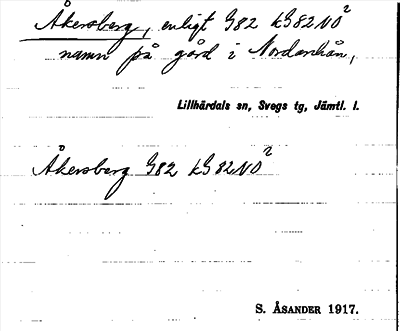 Åkersberg, enligt G82 kG82NO²
namn på gård i Nordanhån,
Lillhärdals sn, Svegs tg, Jämtl. l.
Åkersberg G82 kG82NO²
S. ÅSANDER 1917.